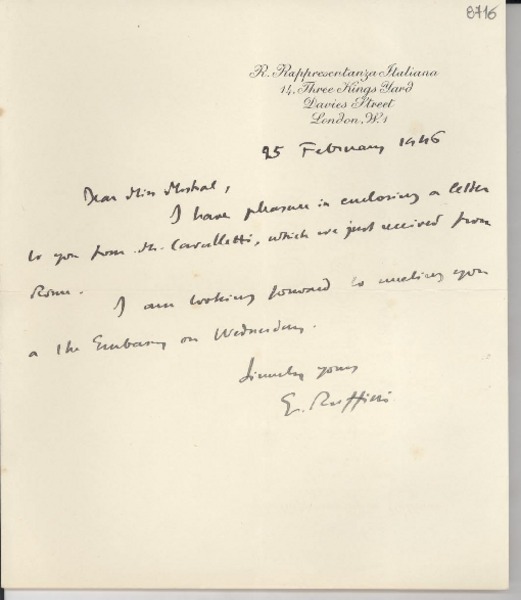 8716
R. Rappresentanza Italiana
14, Three Kings Yard
Davies Street
London, W.1
25 February 1946
Dear Miss Mistral,
I have pleasure in enclosing a letter
to you from Mr. Cavalletti, which we just received from
Rome.
I am looking forward to meeting you
a the Embassy on Wednesday.
Sincerely yours